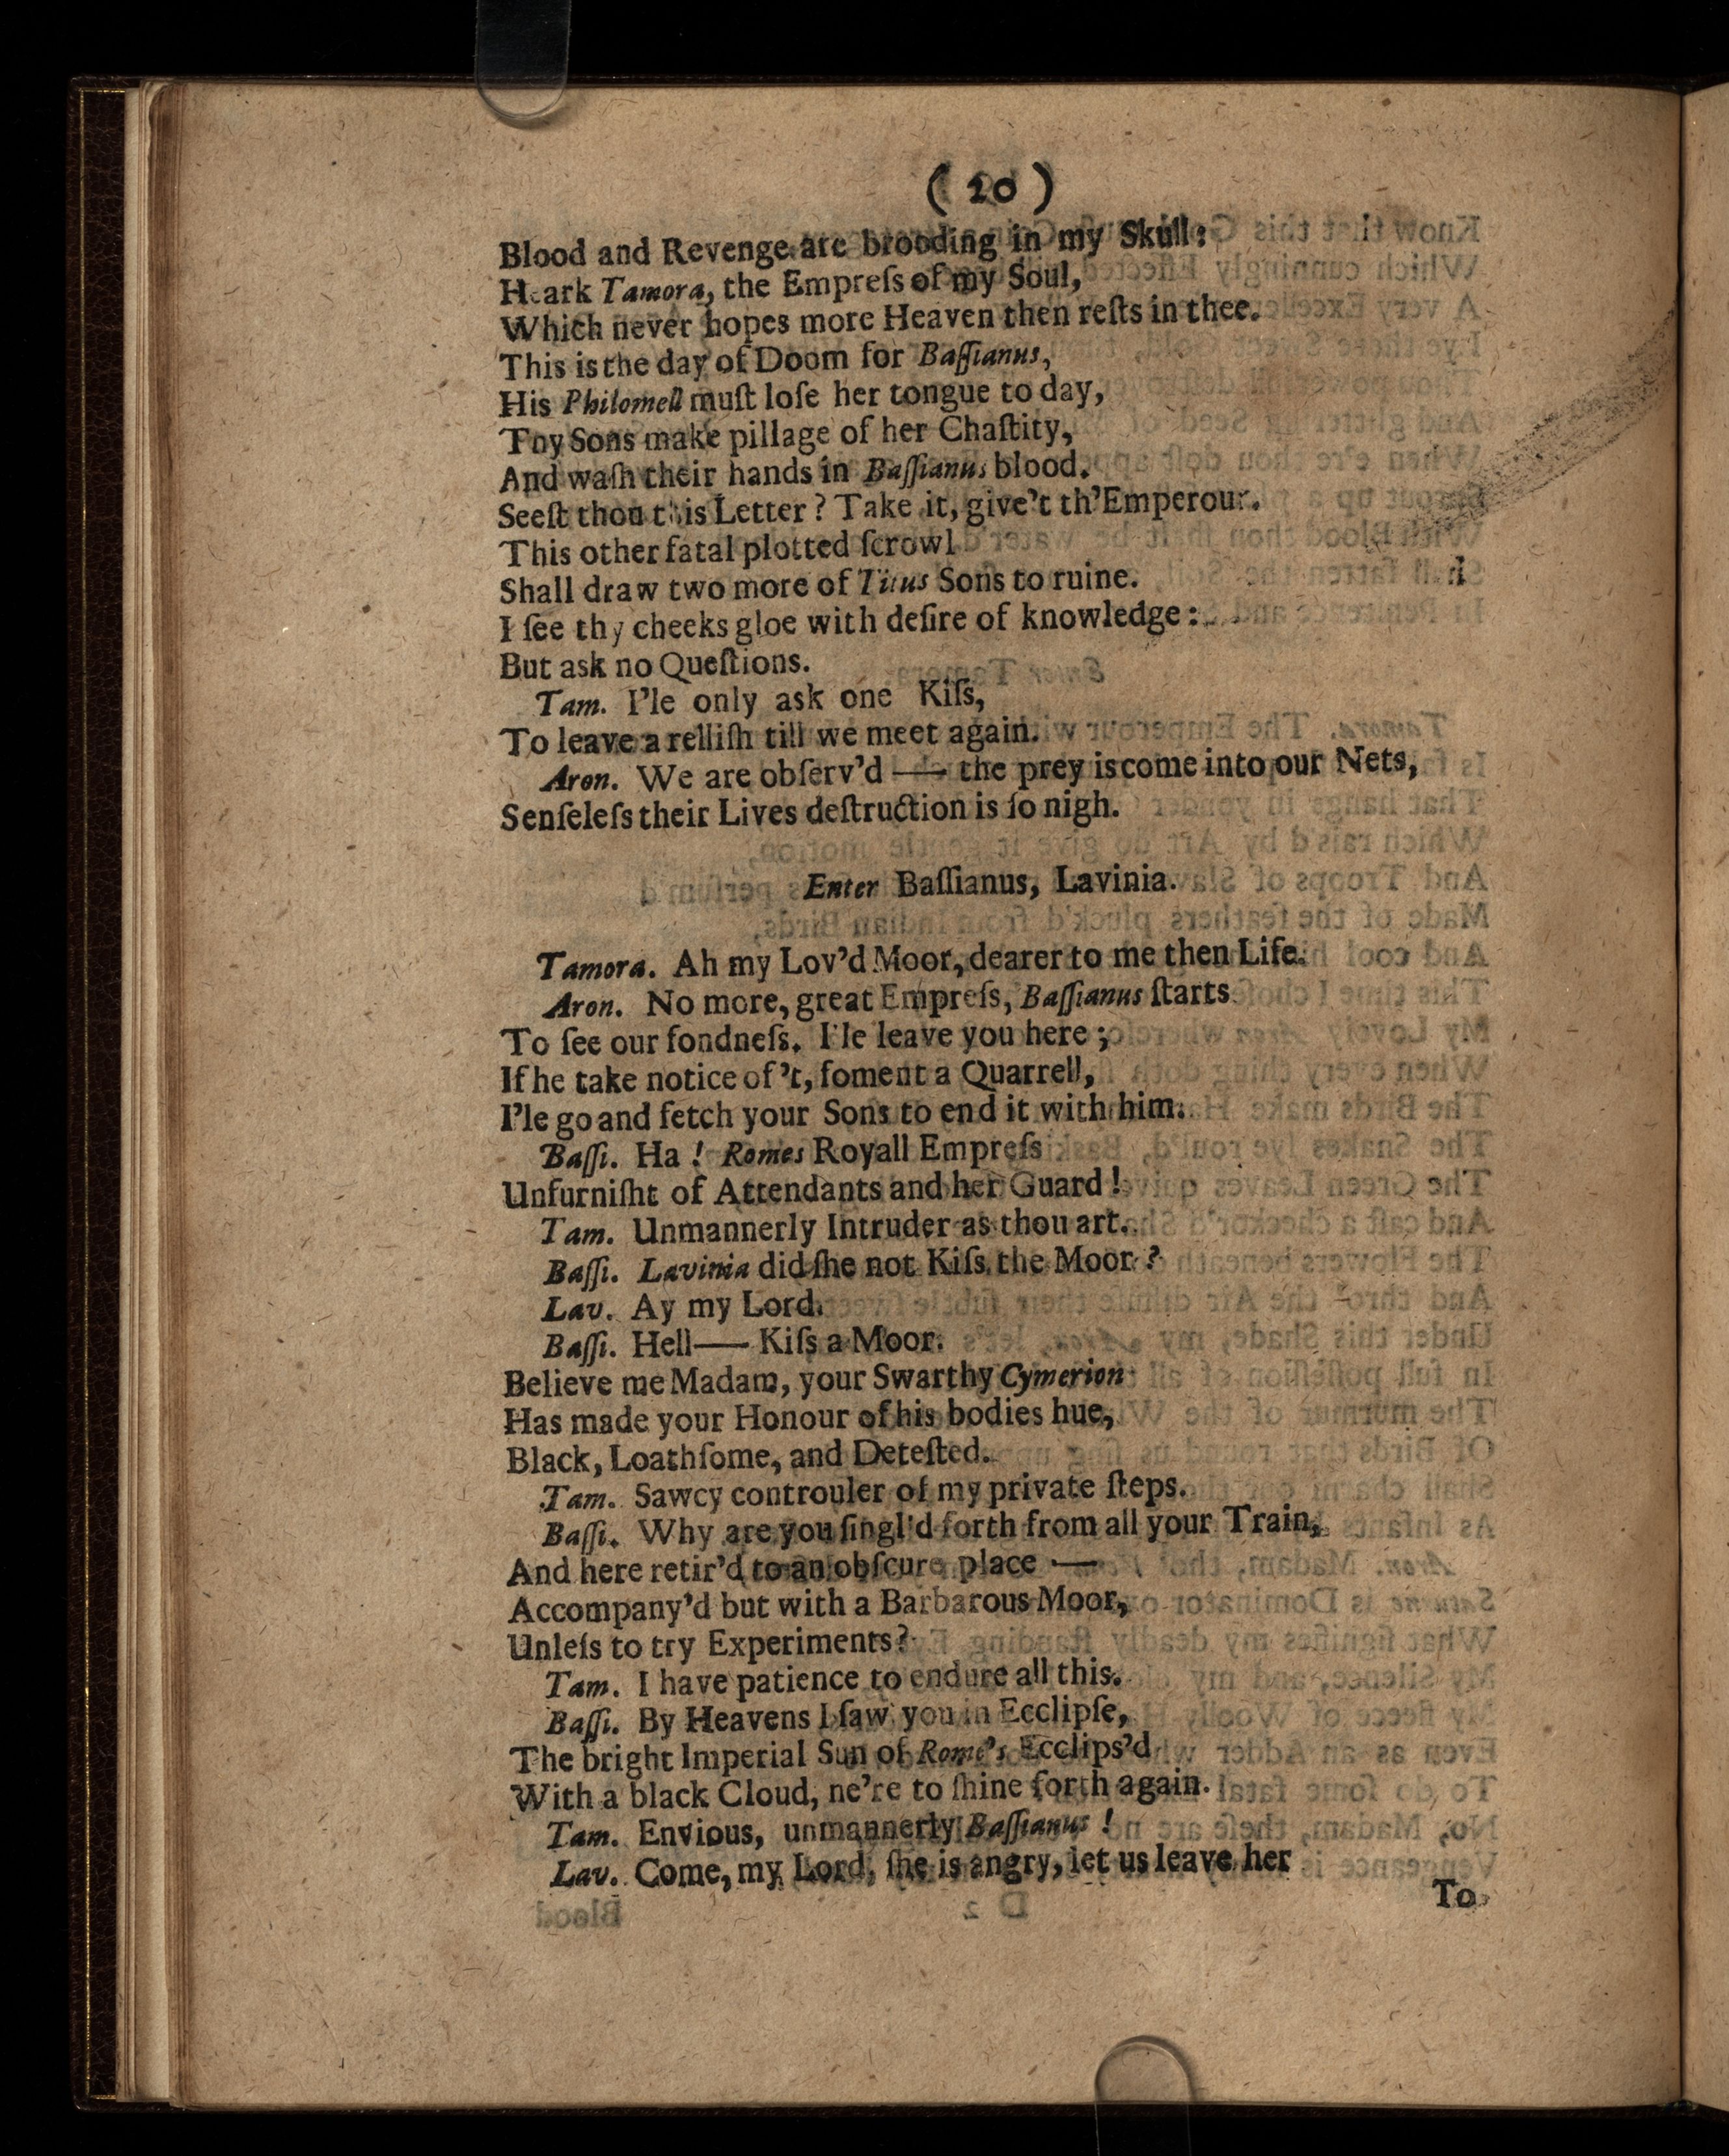 ( 20 )
Blood and Revenge are brooding in my Skull:
Heark Tamora, the Empreſs of my Soul,
Which never hopes more Heaven then reſts in thee.
This is the day of Doom for Baſſianus,
His Philomell muſt loſe her tongue to day,
Thy Sons make pillage of her Chaſtity,
And waſh their hands in Baſſianus blood.
Seeſt thou this Letter? Take it, give't th'Emperour.
This other fatal plotted ſcrowl
Shall draw two more of Titus Sons to ruine.
I ſee thy cheeks gloe with deſire of knowledge:
But ask no Queſtions.
Tam. I'le only ask one Kiſs,
To leave a relliſh till we meet again.
Aron. We are obſerv'd —— the prey is come into our Nets,
Senſeleſs their Lives deſtruction is ſo nigh.
Enter Baſſianus, Lavinia.
Tamora. Ah my Lov'd Moor, dearer to me then Life.
Aron. No more, great Empreſs, Baſſianus ſtarts
To ſee our fondneſs. I'le leave you here;
If he take notice of't, foment a Quarrell,
I'le go and fetch your Sons to end it with him.
Baſſi. Ha! Romes Royall Empreſs
Unfurniſht of Attendants and her Guard!
Tam. Unmannerly Intruder as thou art.
Baſſi. Lavinia did ſhe not Kiſs the Moor?
Lav. Ay my Lord.
Baſſi. Hell—— Kiſs a Moor.
Believe me Madam, your Swarthy Cymerion
Has made your Honour of his bodies hue,
Black, Loathſome, and Deteſted.
Tam. Sawcy controuler of my private ſteps.
Baſſi. Why are you ſingl'd forth from all your Train,
And here retir'd to an obſcure place ——
Accompany'd but with a Barbarous Moor,
Unleſs to try Experiments?
Tam. I have patience to endure all this.
Baſſi. By Heavens I ſaw you in Ecclipſe,
The bright Imperial Sun of Rome's Ecclips'd
With a black Cloud, ne're to ſhine forth again.
Tam. Envious, unmannerly Baſſianus!
Lav. Come, my Lord, ſhe is angry, let us leave her
To